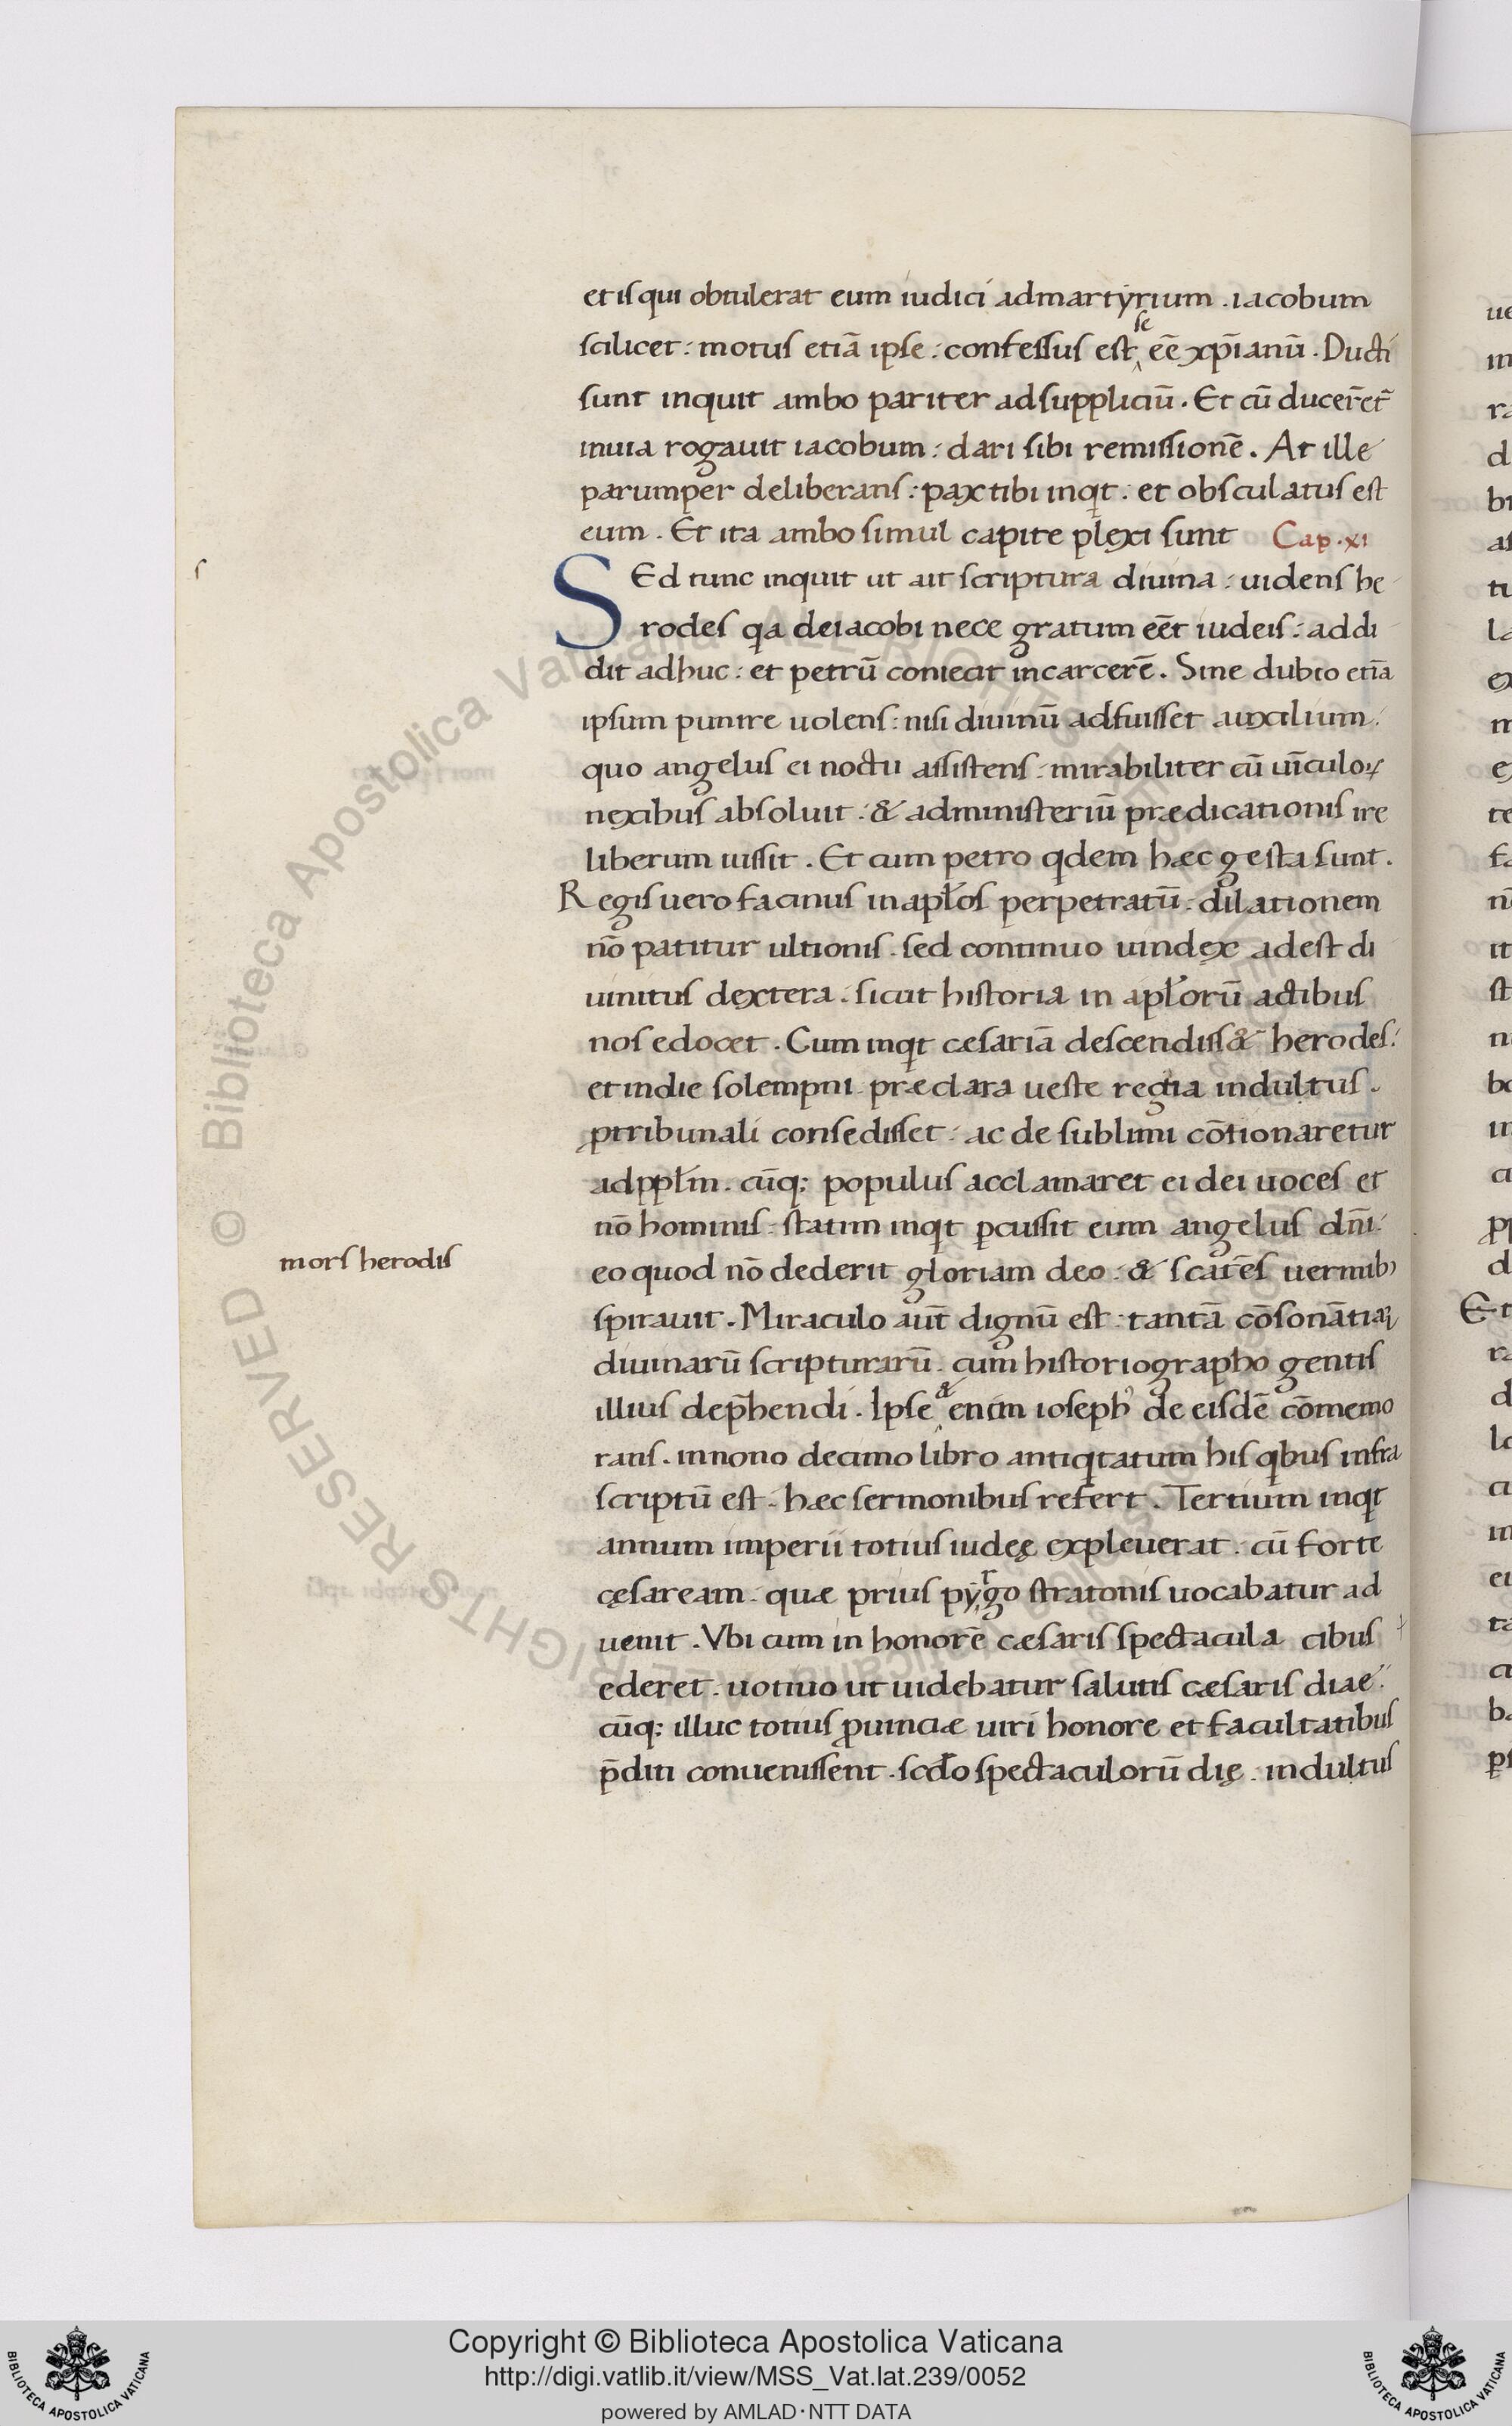 et is qui obtulerat eum iudici ad martyrium . iacobum
scilicet : motus etiā ipse : confessus est se eē xp̄ianū . Ducti
sunt inquit ambo pariter ad suppliciū . Et cū ducerēt᷑
in uia rogauit iacobum : dari sibi remissionē . At ille
parumper deliberans : pax tibi inqt : et obsculatus est
eum . Et ita ambo simul capite plexi sunt Cap . xi
SEd tunc inquit ut ait scriptura diuina : uidens he
rodes qa de iacobi nece gratum eēt iudeis : addi
dit adhuc : et petrū coniecit in carcerē . Sine dubio etiā
ipsum punire uolens : nisi diuinū adfuisset auxilium :
quo angelus ei noctu assistens : mirabiliter cū uīculoꝝ
nexibus absoluit : & ad ministeriū prædicationis ire
liberum iussit . Et cum petro qdem hæc gesta sunt .
Regis uero facinus in apl̄os perpetratū : dilationem
nō patitur ultionis . sed continuo uindex adest di
uinitus dextera . sicut historia in apl̄orū actibus
nos edocet . Cum inqt cæsariā descendiss& herodes :
et in die solempni præclara ueste regia indultus .
ꝓ tribunali consedisset : ac de sublimi cōtionaretur
ad ppl̄m . cūq; populus acclamaret ei dei uoces et
nō hominis : statim inqt ꝑcussit eum angelus dn̄i :
mors herodis
eo quod nō dederit gloriam deo : & scatēs uermib;
spirauit . Miraculo aut̄ dignū est : tantā cōsonātiam
diuinarū scripturarū . cum historiographo gentis
illius dep̄hendi . Ipse & enim ioseph᾿ de eisdē cōmemo
rans . in nono decimo libro antiqtatum his qbus infra
scriptū est . hæc sermonibus refert . Tertium inqt
annum imperii totius iudeę expleuerat : cū forte
cęsaream . quæ prius pyrgo stratonis uocabatur ad
uenit . Vbi cum in honorē cæsaris spectacula cibus
ederet . uotiuo ut uidebatur salutis cæsaris diae :
cūq; illuc totius ꝓuinciæ uiri honore et facultatibus
p̄diti conuenissent . scd̄o spectaculorū dię . indultus
Copyright © Biblioteca Apostolica Vaticana
http://digi.vatlib.it/view/MSS_Vat.lat.239/0052
powered by AMLAD·NTT DATA